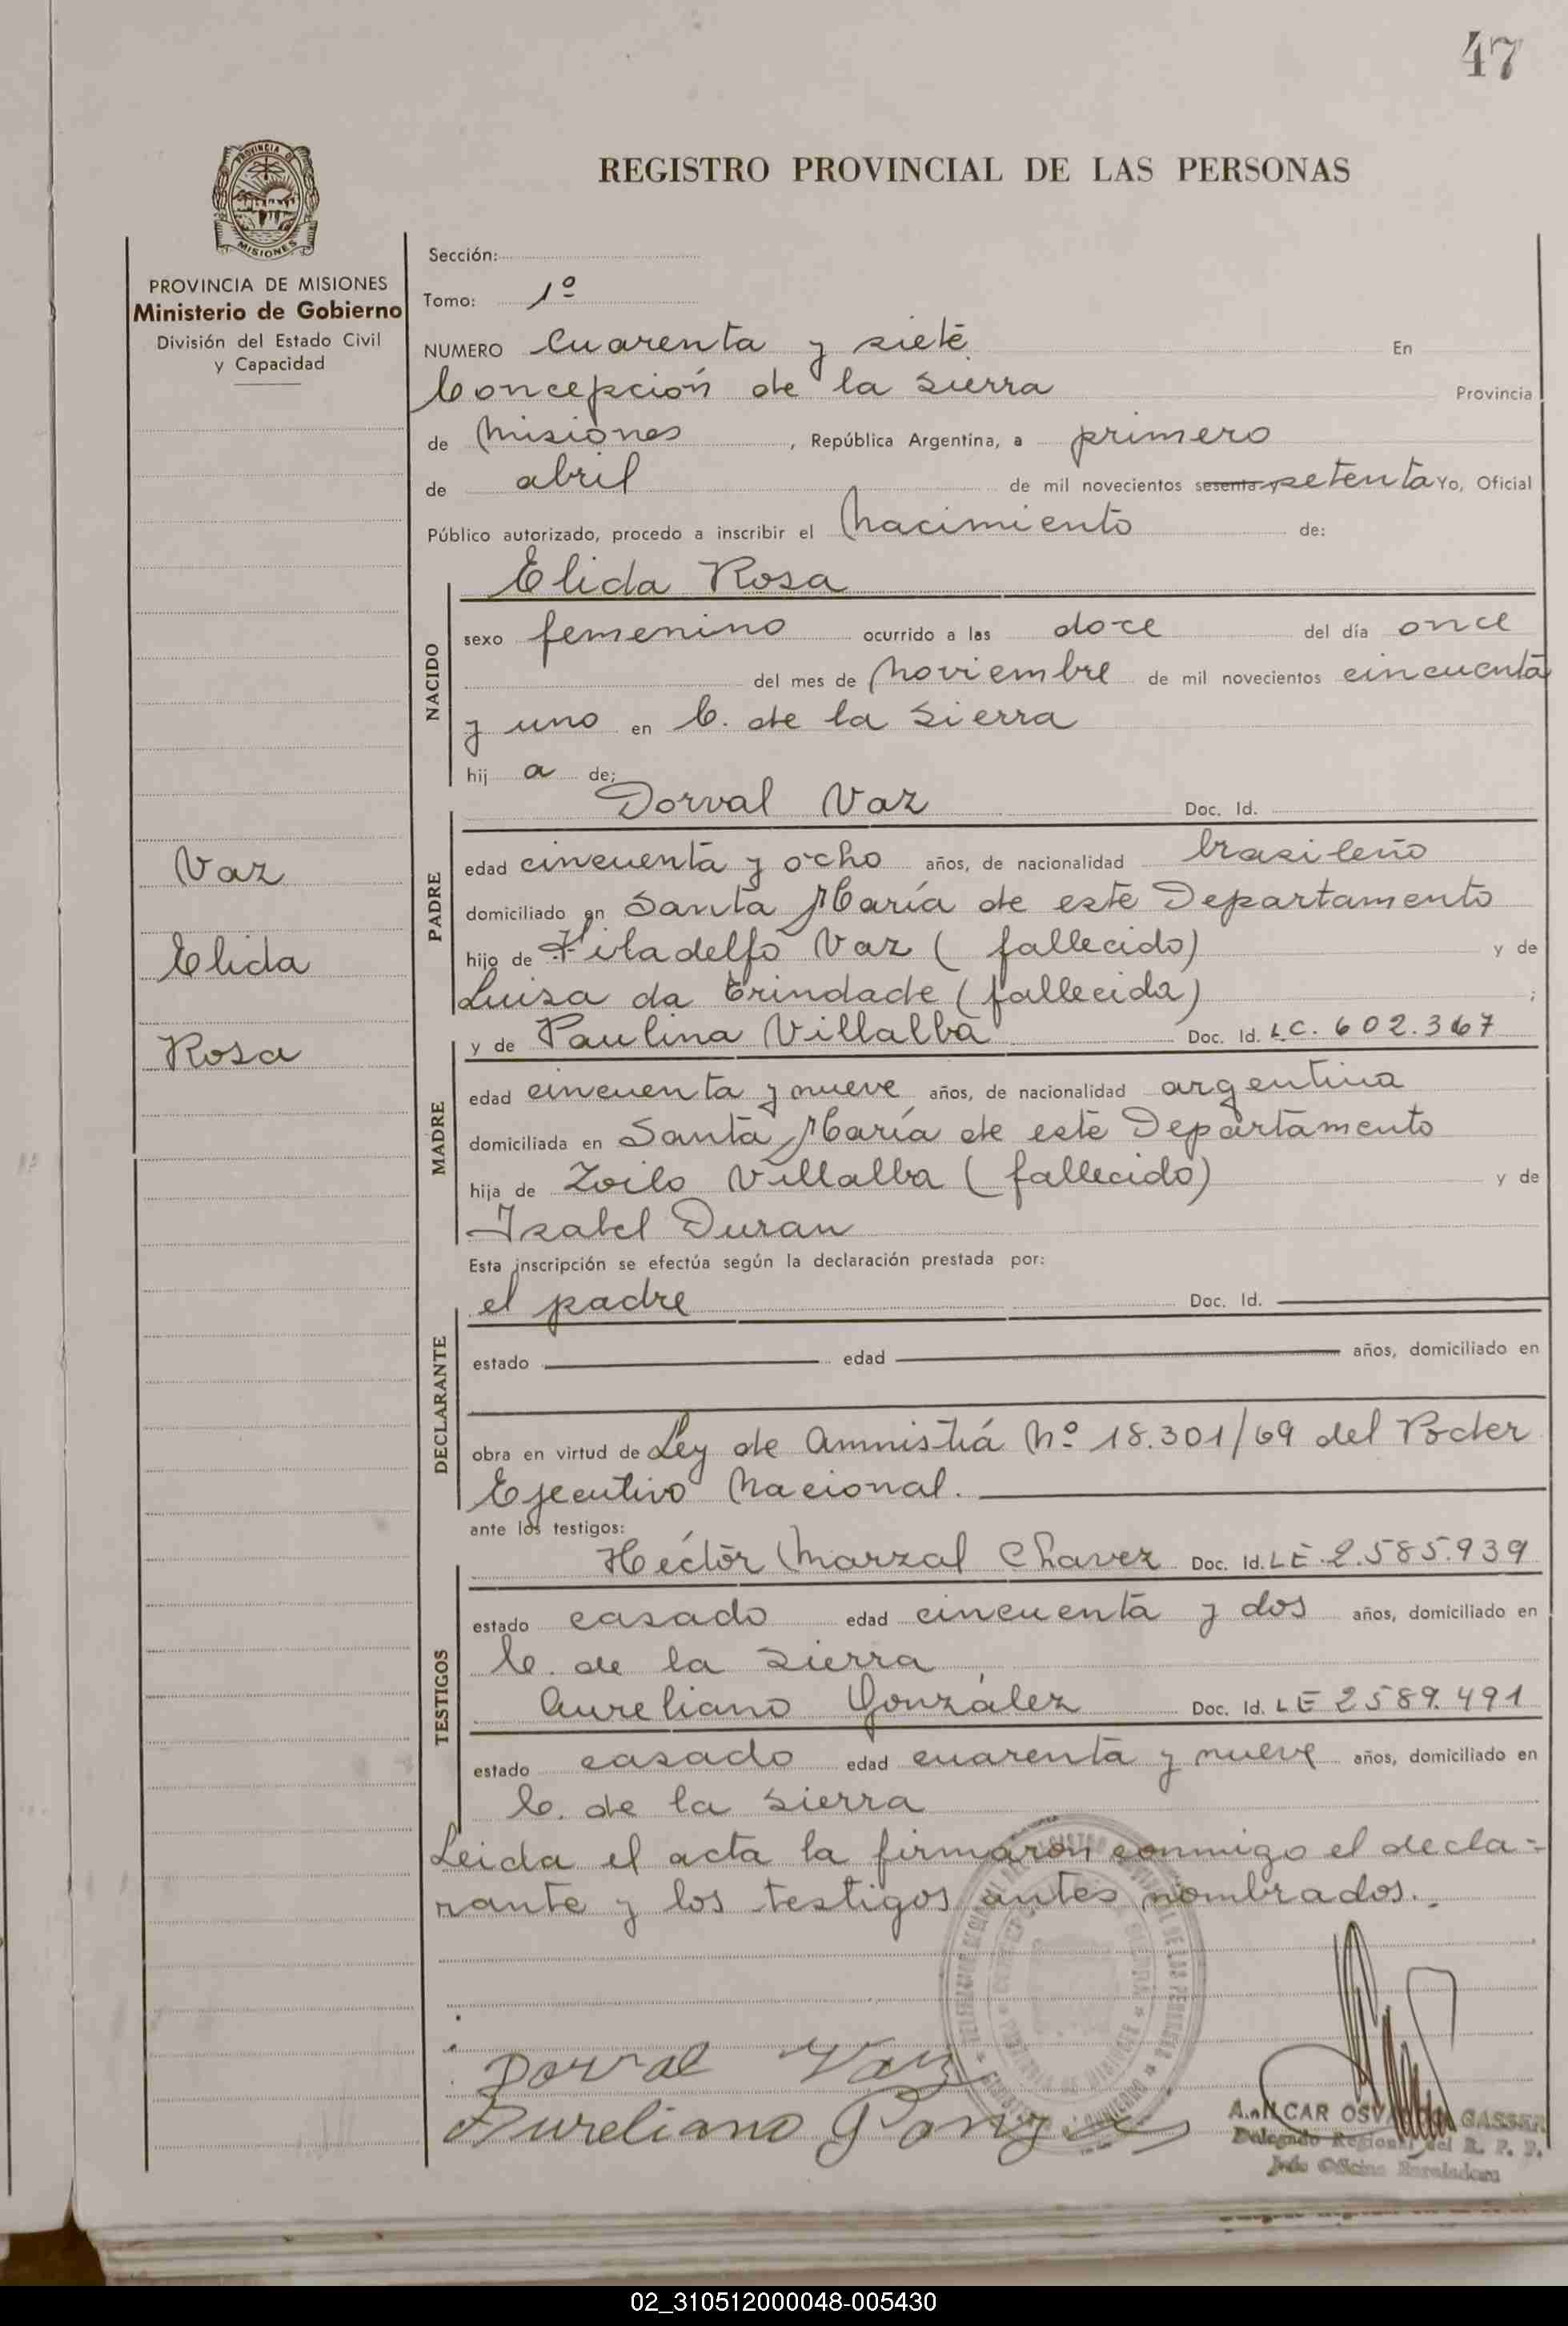 47
PROVINCIA DE
MISIONES
REGISTRO PROVINCIAL DE LAS PERSONAS
PROVINCIA DE MISIONES
Ministerio de Gobierno
División del Estado Civil
y Capacidad
Vaz
Elida
Rosa
Sección:
Tomo: 1º
NUMERO Cuarenta y siete En
Concepción de la Sierra Provincia
de Misiones, República Argentina, a primero
de abril de mil novecientos sesenta y setenta Yo, Oficial
Público autorizado, procedo a inscribir el Nacimiento de:
Elida Rosa
NACIDO
sexo femenino ocurrido a las doce del día once
del mes de Noviembre de mil novecientos cincuenta
y uno en C. de la Sierra
hij a de:
PADRE
Dorval Vaz Doc. Id.
edad cincuenta y ocho años, de nacionalidad brasileño
domiciliado en Santa María de este Departamento
hijo de Filadelfo Vaz (fallecido) y de
Luisa da Trindade (fallecida) ;
MADRE
y de Paulina Villalba Doc. Id. LC. 602.367
edad cincuenta y nueve años, de nacionalidad argentina
domiciliada en Santa María de este Departamento
hija de Zoilo Villalba (fallecido) y de
Isabel Duran
Esta inscripción se efectúa según la declaración prestada por:
DECLARANTE
el padre Doc. Id.
estado edad años, domiciliado en
obra en virtud de Ley de Amnistiá Nº 18.301/69 del Poder
Ejecutivo Nacional.
ante los testigos:
TESTIGOS
Hector Marzal Chavez Doc. Id. LE 2.585.939
estado casado edad cincuenta y dos años, domiciliado en
C. de la Sierra
Aureliano González Doc. Id. LE 2589.491
estado casado edad cuarenta y nueve años, domiciliado en
C. de la Sierra
Leida el acta la firmaron conmigo el decla-
rante y los testigos antes nombrados.
Dorval Vaz
Aureliano Gonzalez
GASSER
Delegado Regional del R. P. P.
Jefe Oficina
02_310512000048-005430